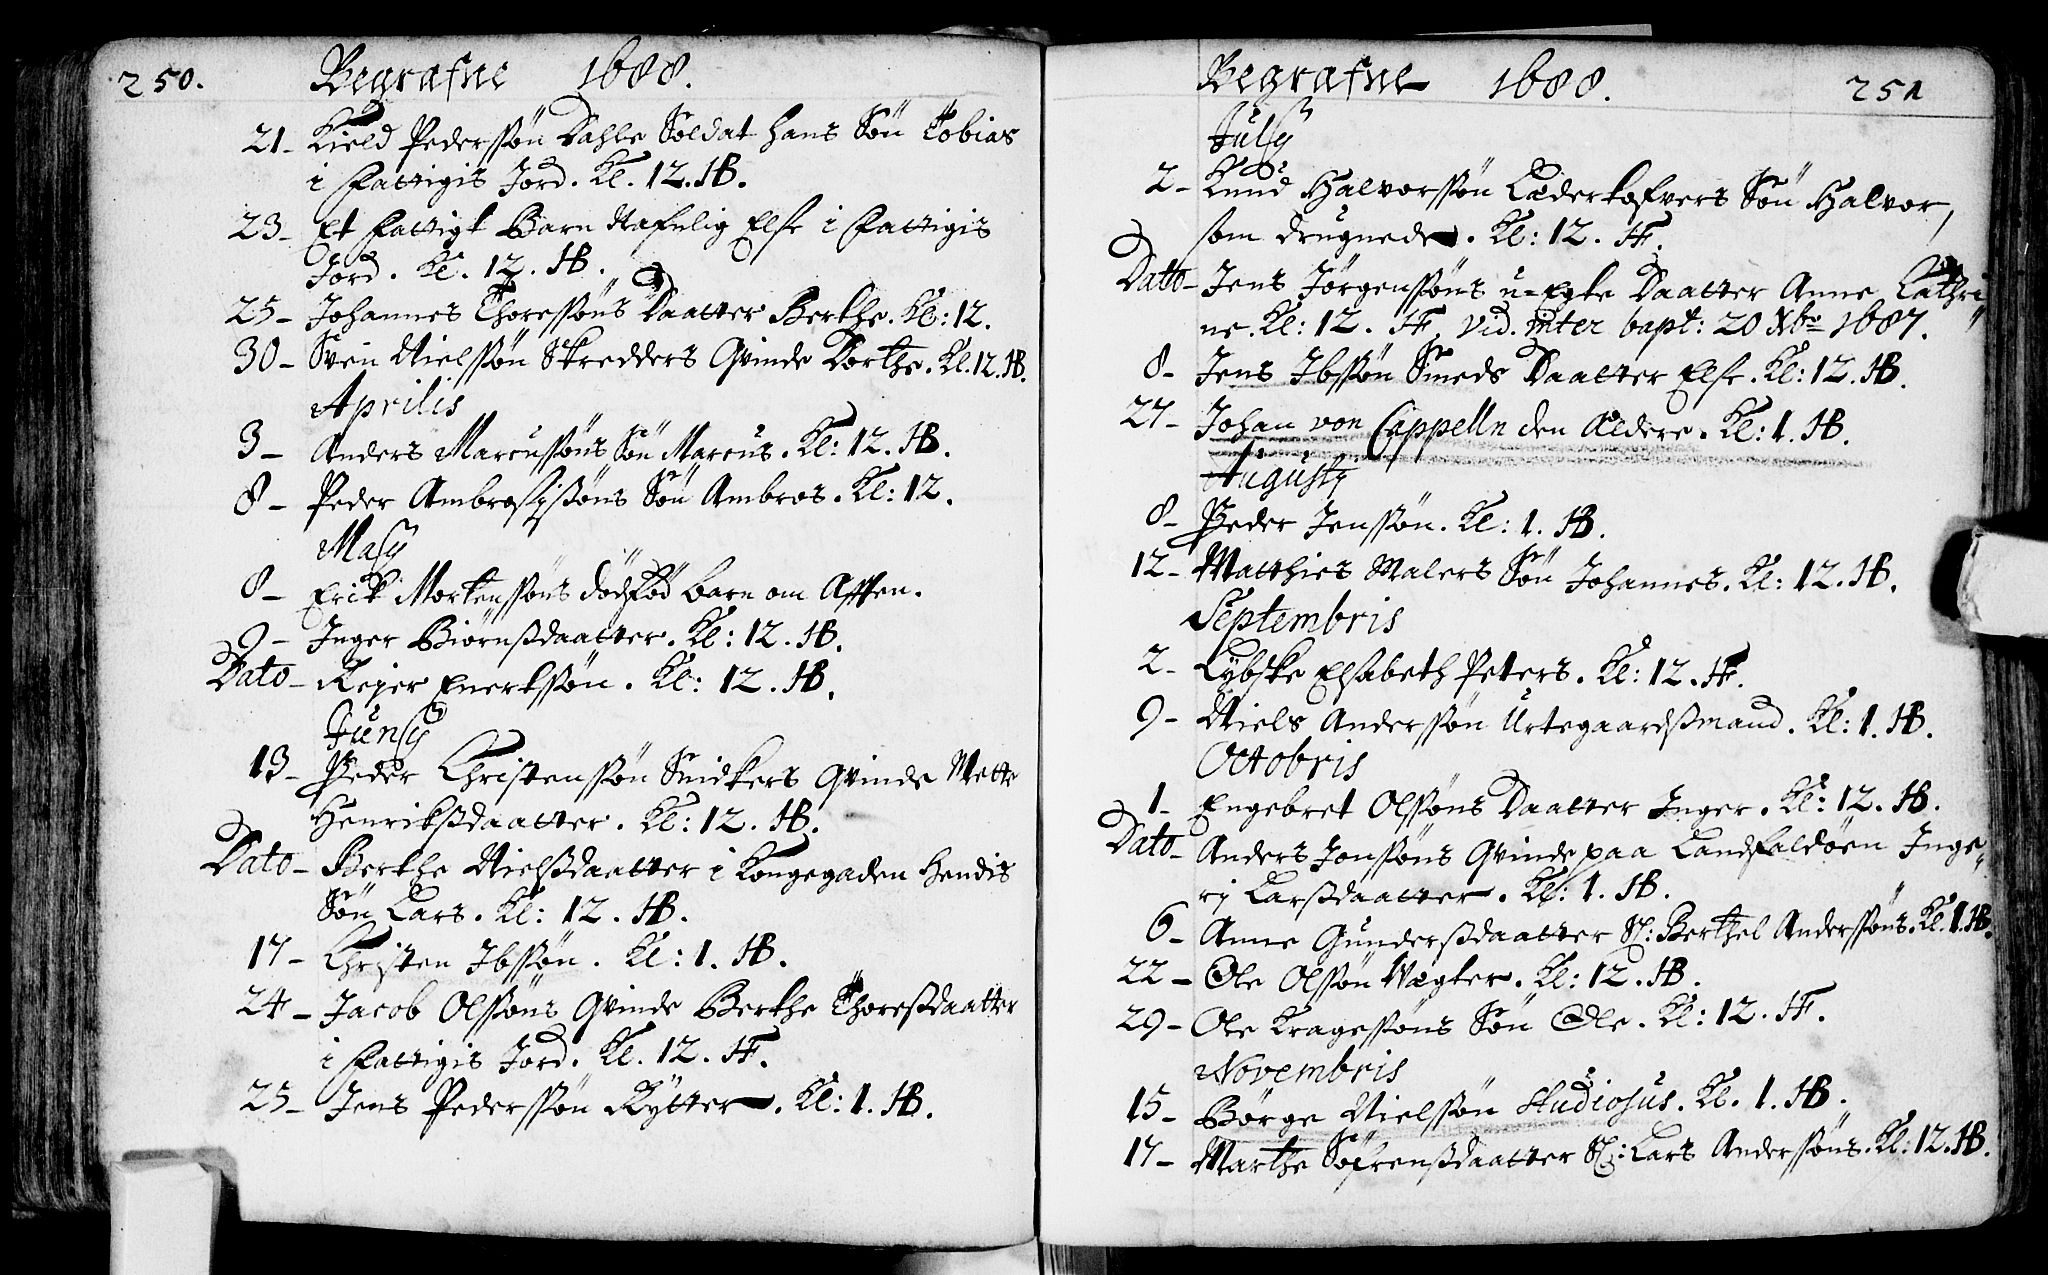 250. Begrafne 1688.
21- Kield Pederssøn Dahle Soldat hans Søn Tobias
i Fattigis Jord. Kl. 12. HB.
23- Et Fattigt Barn Nafnlig Else i Fattigis
Jord. Kl. 12. HB.
25- Johannes Thoressøns Daatter Berthe. Kl: 12.
30- Sven Nielssøn Skredders Qvinde Dorthe. Kl. 12. HB.
Aprilis
3- Anders Marcussøns Søn Marcus. Kl: 12. HB.
8- Peder Ambrosijssøns Søn Ambros. Kl: 12.
Maij
8- Erick Mortenssøns dødfød barn om Afften.
9- Inger Biørnsdaatter. Kl: 12. HB.
Dato- Rejer Enerlssøn. Kl: 12. HB.
Junij
13- Peder Christenssøn Snidkers Qvinde Mette
Henriksdaatter. Kl: 12. HB.
Dato- Berthe Nielsdaatter i Kongegaden hendis
Søn Lars. Kl: 12. HB.
17- Christen Ibssøn. Kl: 1. HB.
24- Jacob Olssøns Qvinde Berthe Thoresdaatter
i Fattigis Jord. Kl. 12. HF.
25- Jens Pederssøn Rytter. Kl: 1. HB.
Begrafne 1688. 251
Julij
2- Knud Halvorssøn Læderkofvers Søn Halvor,
som drugnede. Kl: 12. HF.
Dato- Jens Jørgenssøns u-Egte Daatter Anne Cathri
ne. Kl: 12. HF. vid. inter bapt: 20 Xbr 1687.
8- Jens Ibssøn Smeds Daatter Else. Kl: 12. HB.
27- Johan von Cappelln den Ældere. Kl: 1. HB.
Augusti
8- Peder Jenssøn. Kl: 1. HB.
12- Matthies Malers Søn Johannes. Kl: 12. HB.
Septembris
2- Lybske Elsabeth Peters. Kl: 12. HF.
9- Niels Anderssøn Urtegaardsmand. Kl: 1. HB.
Octobris
1- Engebret Olssøns Daatter Inger. Kl: 12. HB.
Dato- Anders Jonssøns Qvinde paa Landfaldøen Inge
rj Larsdaatter. Kl: 1. HB.
6- Anne Gundersdaatter Sl: Berthel Anderssøns. Kl. 1. HB.
22- Ole Olssøn Vægter. Kl: 12. HB.
29- Ole Kragessøns Søn Ole. Kl: 12. HF.
Novembris
15- Børge Nielssøn Studiosus. Kl. 1. HB.
17- Marthe Sørensdaatter Sl: Lars Anderssøns. Kl: 12. HB.